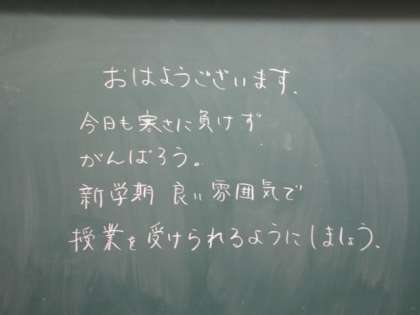 おはようございます。
今日も寒さに負けず
がんばろう。
新学期 良い雰囲気で
授業を受けられるようにしましょう。